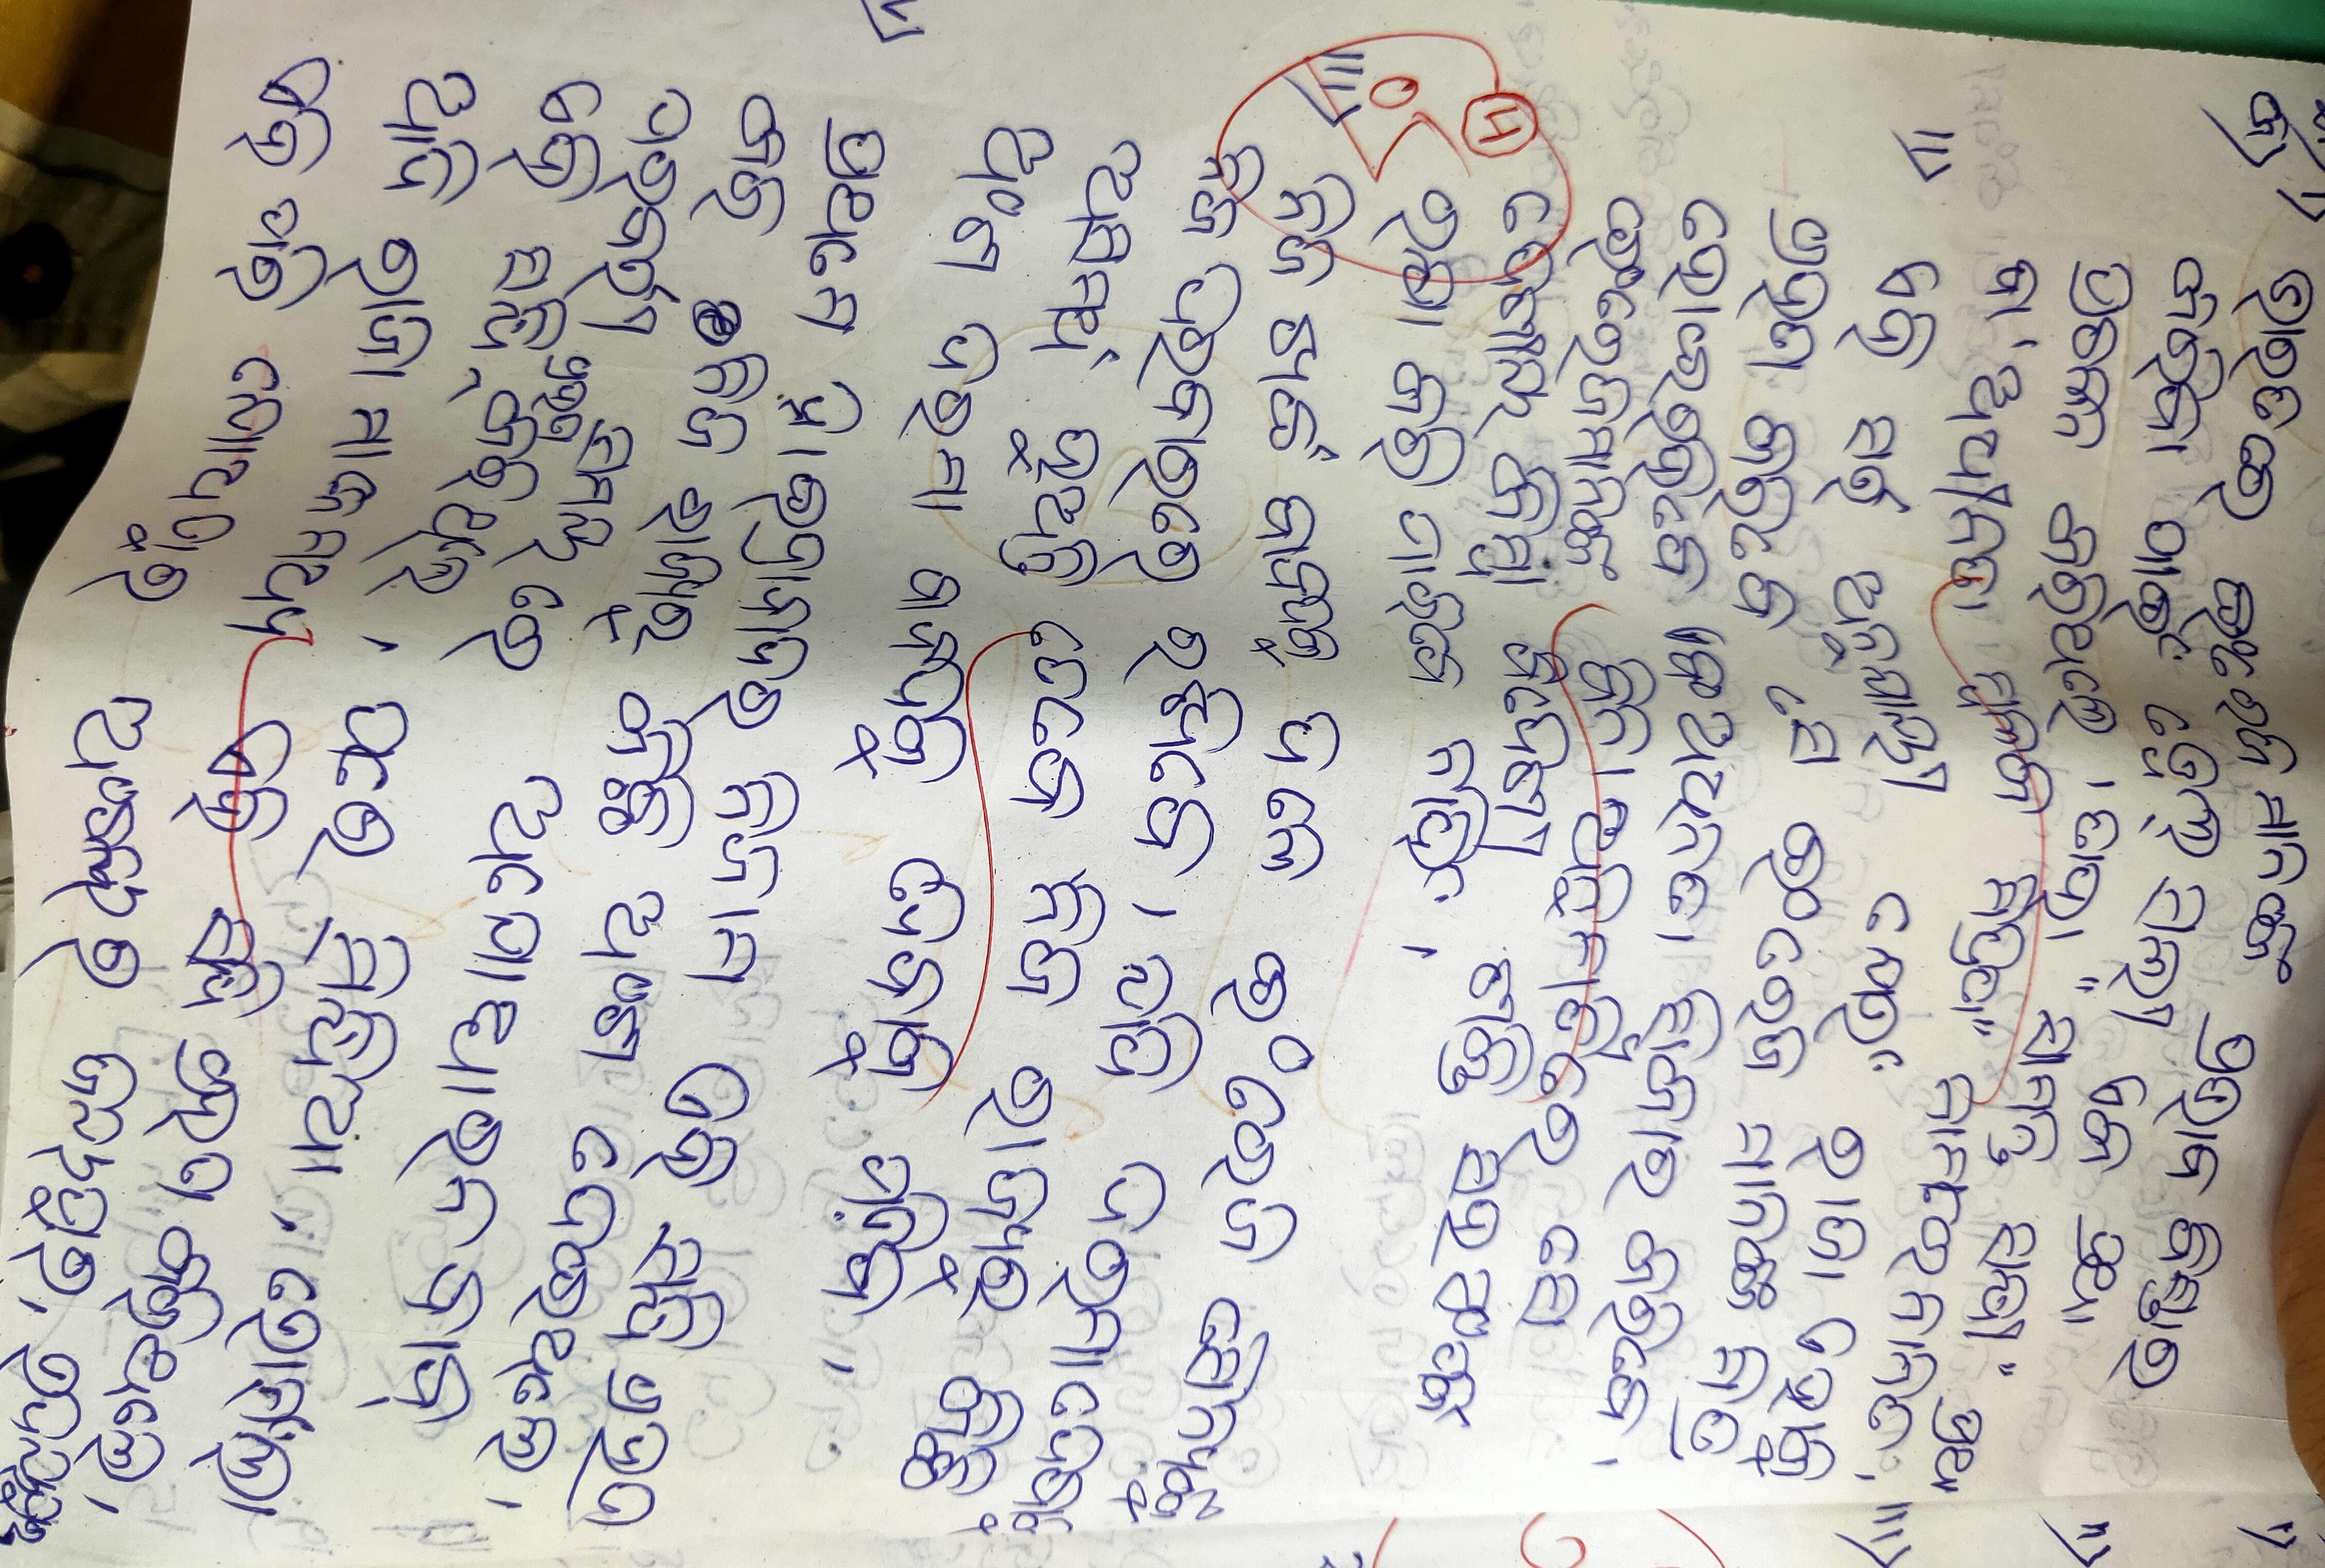 କ)
ଭାରତରେ ଇଂରେଜ ମାନଙ୍କ ପ୍ରଭାବ ବିସ୍ତାର
କରିବା ପାଇଁ ୱେଲେସଲୀ ଏକ ପ୍ରଥା
ପ୍ରଚଳନ କରିଥିଲେ । ତାହା "ସାମନ୍ତ ସନ୍ଧୀ" ପ୍ରଥା
ବା 'ଅଧୀନତା ମୂଳକ ମିତ୍ରତା" ନାମରେ ନାମିତ ।
ii) ଏହି ସର୍ତ୍ତ ଅନୁଯାୟୀ ଯେଉଁ ରାଜା ଏହାକୁ
ଗ୍ରହଣ କରିବେ ସେ ଇଂରେଜ ମାନଙ୍କ ମିତ୍ର
ହୋଇରହିବେ ଅଧିନତା ସ୍ୱିକାର କରିବେ ।
ଇଂରେଜମାନଙ୍କ ବିନା ଅନୁମତିରେ ସେ
ଦେଶୀୟ କିମ୍ବା ବିଦେଶୀ ଶକ୍ତି ସହ ସଂପର୍କ
ରକ୍ଷା କରି ପାରିବେ ନାହିଁ ।
4
iii) ନିଜ ଖର୍ଚ୍ଚ ବାବଦକୁ ଦେଲେ ଇଂରେଜ ସୈନ୍ୟଙ୍କୁ
ନିଜ ଦରବାରରେ ରଖିବେ । ଯଦି ଦରମା ଦେବାକୁ
ଅସମର୍ଥ ହୁଅନ୍ତି ତେବେ ନିଜ ରାଜ୍ୟରୁ କିଛି
ଅଂଶ ଦରମା ବାବଦକୁ ଦେବାକୁ ପଡ଼ିବ ।
ପ୍ରଥମେ ହାଇଦ୍ରାବାଦର ନିଜାମ ଏହି ସନ୍ଧି ଗ୍ରହଣ
କରି ନିଜ ରାଜ୍ୟରୁ କିଛି ଅଂଶ ଦେଇଥିଲେ ।
ପରବର୍ତ୍ତୀ ସମୟରେ ଅଯୋଧ୍ୟାର ନବାବ୍
ଏହି ସନ୍ଧି ଗ୍ରହଣ କରିଥିଲେ । ପରେ ସିନ୍ଧିଆ, ଭୋନସଲା
ଆଦି ରାଜା ମାନେ ମଧ୍ୟ ଏହି ସନ୍ଧି ଗ୍ରହଣ କରିଥିଲେ ।
ଏହି ପରି ଯୋଧପୁର ଜୟପୁର,